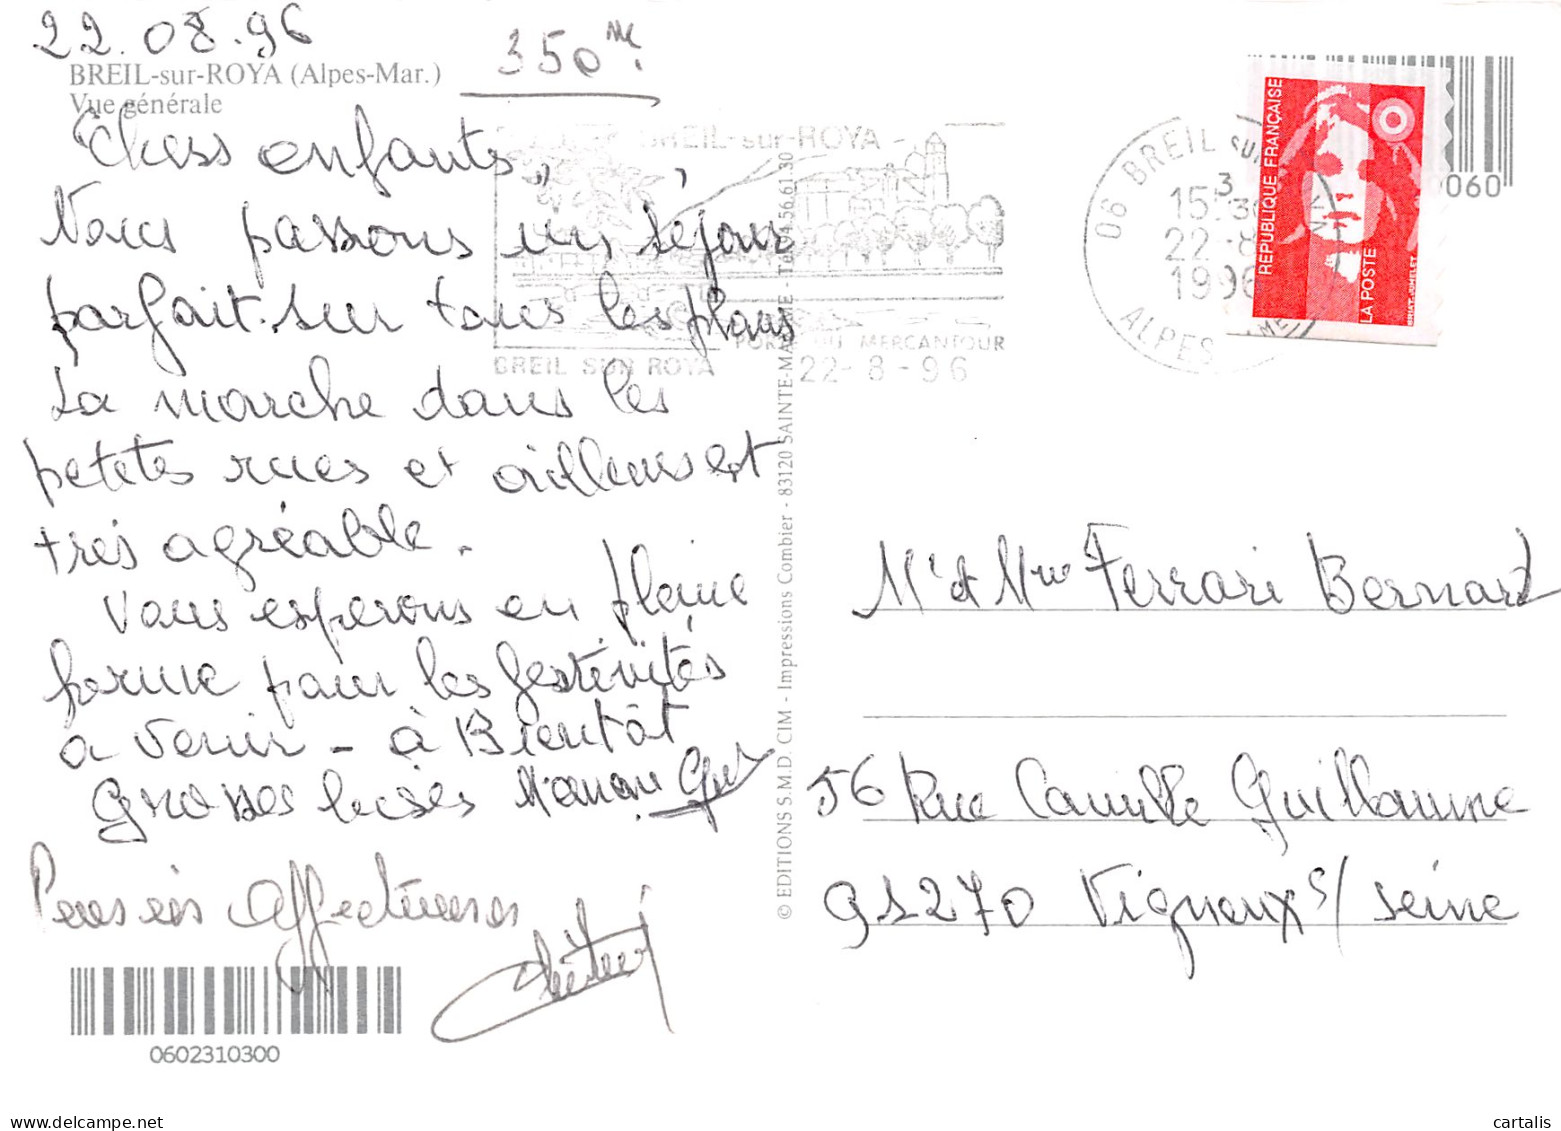 22.08.96
350 m.
BREIL-sur-ROYA (Alpes-Mar.)
Vue générale
Chers enfants,
Nous passons un séjour
parfait sur tous les plans
La marche dans les
petites rues et ailleurs est
très agréable.
Vous esperons en pleine
forme pour les festivités
a venir - à Bientôt
Grosses bises Maman Guy
Pensées affectueuses
0602310300
© EDITIONS S.M.D. CIM - Impressions Combier - 83120 SAINTE-MAXIME - Tél. 94.56.61.30
BREIL-sur-ROYA
PORTE DU MERCANTOUR
BREIL SUR ROYA 22-8-96
06 BREIL sur
15 30
22 -8
1996
ALPES
REPUBLIQUE FRANÇAISE
LA POSTE
060
Mr et Mme Ferrari Bernard
56 Rue Camille Guillaume
91270 Vigneux s/ Seine
www.delcampe.net
cartalis